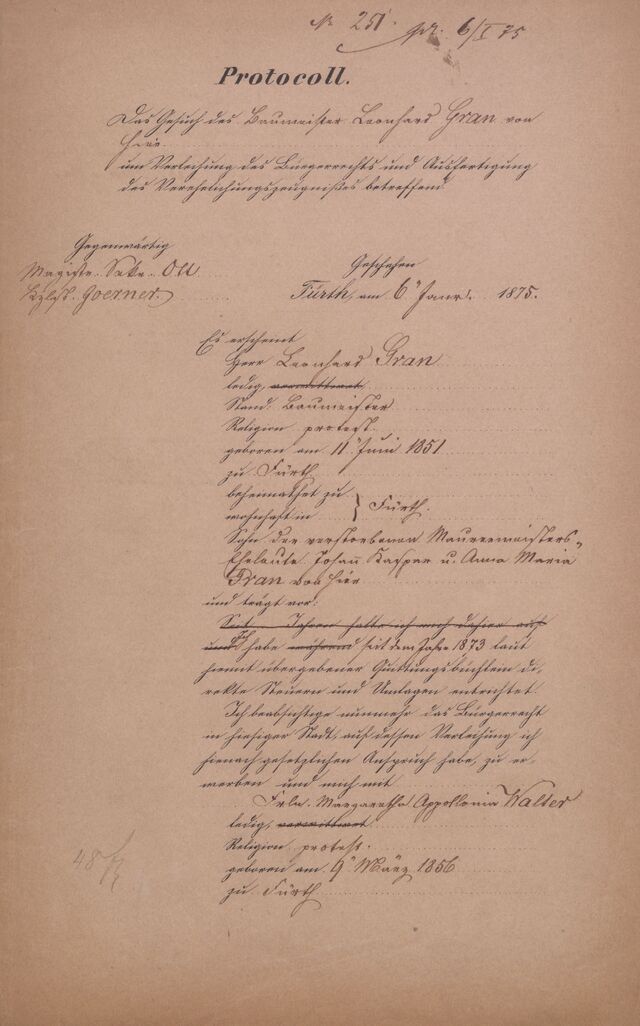 № 251. pr. 6/I 75
Protocoll.
Das Gesuch des Baumeister Leonhard Gran von
hier
um Verleihung des Bürgerrechts und Ausfertigung
des Verehelichungszeugnißes betreffend
Gegenwärtig
Magistr. Sekr. Ott
Kzlst. Goerner.
Geschehen
Fürth, am 6t Janr. 1875.
Es erscheint
Herr Leonhard Gran
ledig, verwittwet
Stand: Baumeister
Religion protest.
geboren am 11t Juni 1851
zu Fürth
beheimathet zu
wohnhaft in } Fürth.
Sohn der verstorbenen Maurermeisters-
Eheleute Johann Kaspar u. Anna Maria
Gran von hier
und trägt vor:
Seit Jahren halte ich mich dahier auf
und Ich habe während seit dem Jahre 1873 laut
hiemit übergebener Quittungsbüchlein di-
rekte Steuern und Umlagen entrichtet.
Ich beabsichtige nunmehr das Bürgerrecht
in hiesiger Stadt, auf dessen Verleihung ich
hienach gesetzlichen Anspruch habe, zu er-
werben und mich mit
Frln. Margaretha Appollonia Walter
ledig, verwittwet
Religion protest.
geboren am 9t März 1856
zu Fürth